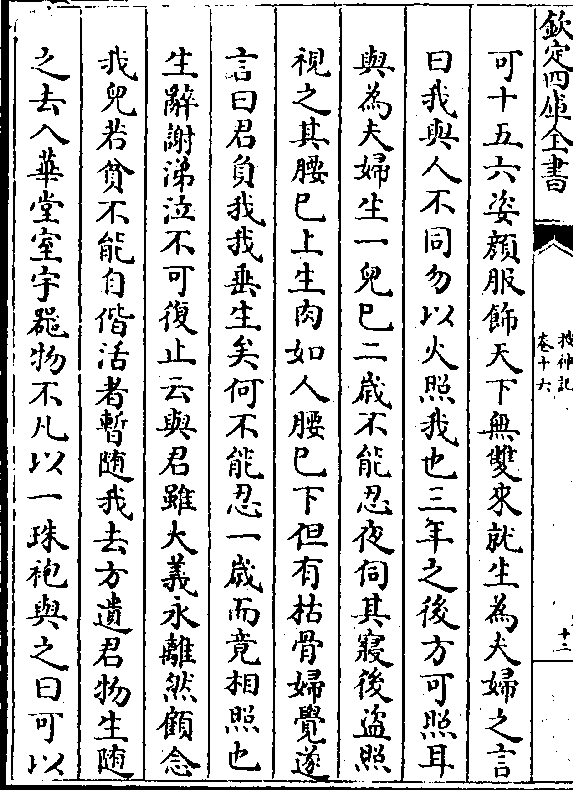 欽定四庫全書
搜神記
卷十六
十三
可十五六姿顔服飾天下無雙來就生為夫婦之言
曰我與人不同勿以火照我也三年之後方可照耳
與為夫婦生一兒已二歳不能忍夜伺其寢後盜照
視之其腰已上生肉如人腰已下但有枯骨婦覺遂
言曰君負我我垂生矣何不能忍一歳而竟相照也
生辭謝涕泣不可復止云與君雖大義永離然顧念
我兒若貧不能自偕活者暫随我去方遺君物生随
之去入華堂室宇器物不凡以一珠袍與之曰可以